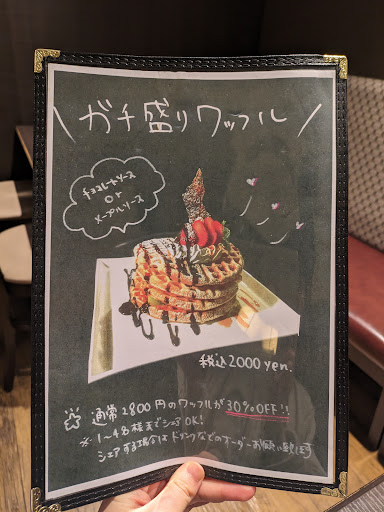 \ ガチ盛りワッフル /
チョコレートソース
or
メープルソース
税込2000yen.
通常2800円のワッフルが30%OFF!!
※1〜4名様までシェアOK!
シェアする場合はドリンクなどのオーダーお願い致します